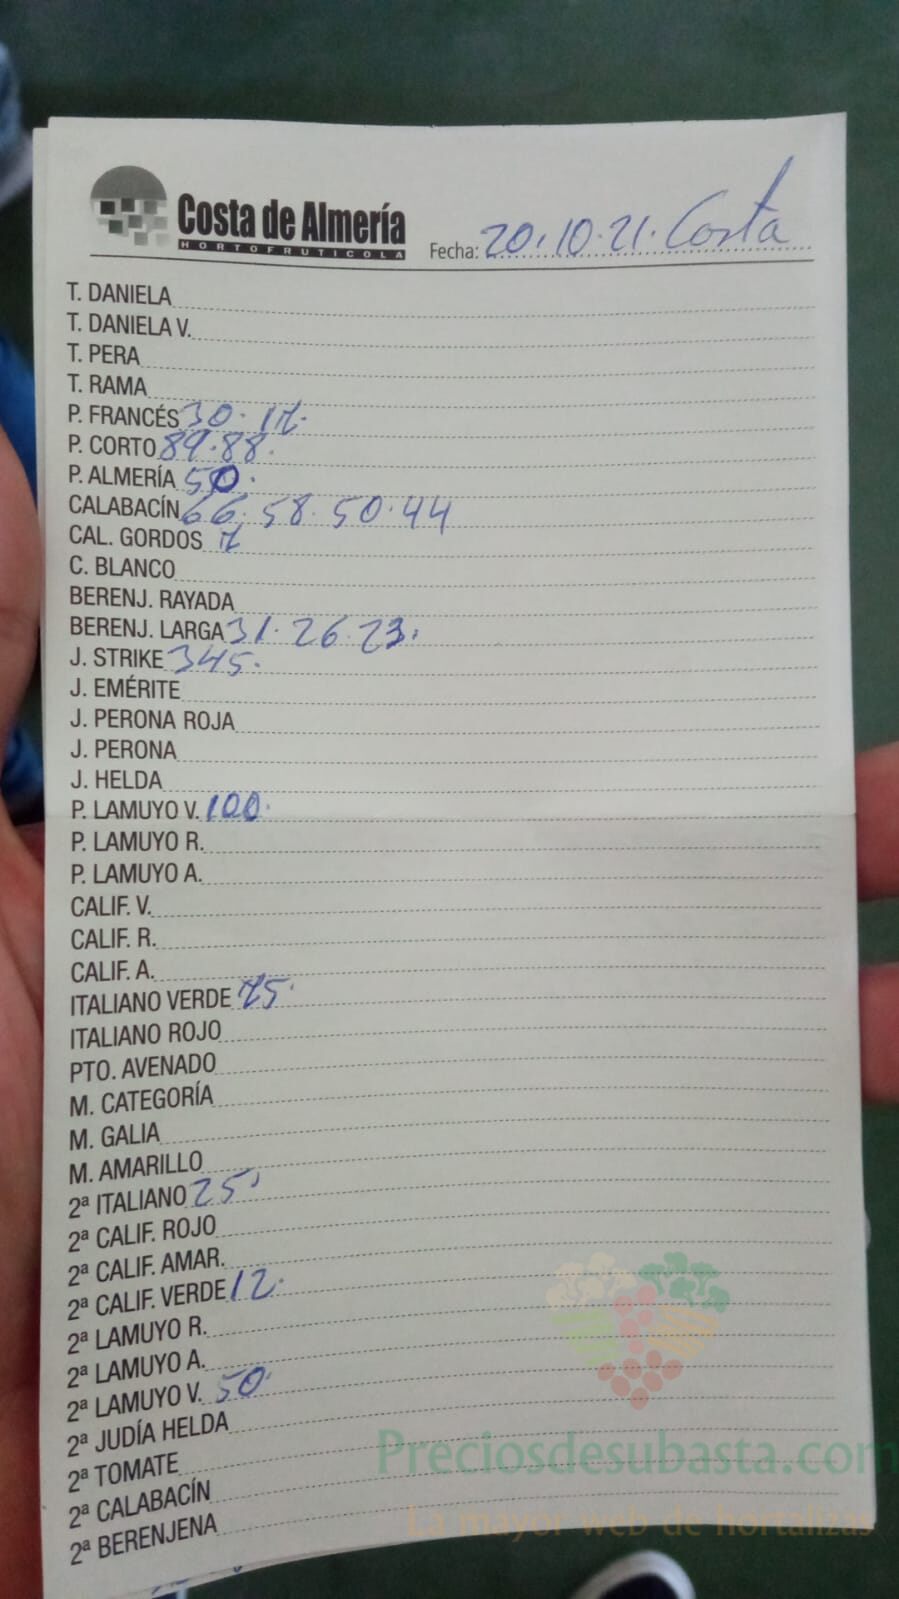 Costa de Almería
HORTOFRUTICOLA
Fecha: 20.10.21. Costa
T. DANIELA
T. DANIELA V.
T. PERA
T. RAMA
P. FRANCÉS 30. 17.
P. CORTO 89.88.
P. ALMERÍA 50.
CALABACÍN 66. 58. 50. 44
CAL. GORDOS 7
C. BLANCO
BERENJ. RAYADA
BERENJ. LARGA 31. 26. 23.
J. STRIKE 345.
J. EMÉRITE
J. PERONA ROJA
J. PERONA
J. HELDA
P. LAMUYO V. 100.
P. LAMUYO R.
P. LAMUYO A.
CALIF. V.
CALIF. R.
CALIF. A.
ITALIANO VERDE 75.
ITALIANO ROJO
PTO. AVENADO
M. CATEGORÍA
M. GALIA
M. AMARILLO
2ª ITALIANO 25.
2ª CALIF. ROJO
2ª CALIF. AMAR.
2ª CALIF. VERDE 12.
2ª LAMUYO R.
2ª LAMUYO A.
2ª LAMUYO V. 50.
2ª JUDÍA HELDA
2ª TOMATE
2ª CALABACÍN
2ª BERENJENA
Preciosdesubasta.com
La mayor web de hortalizas